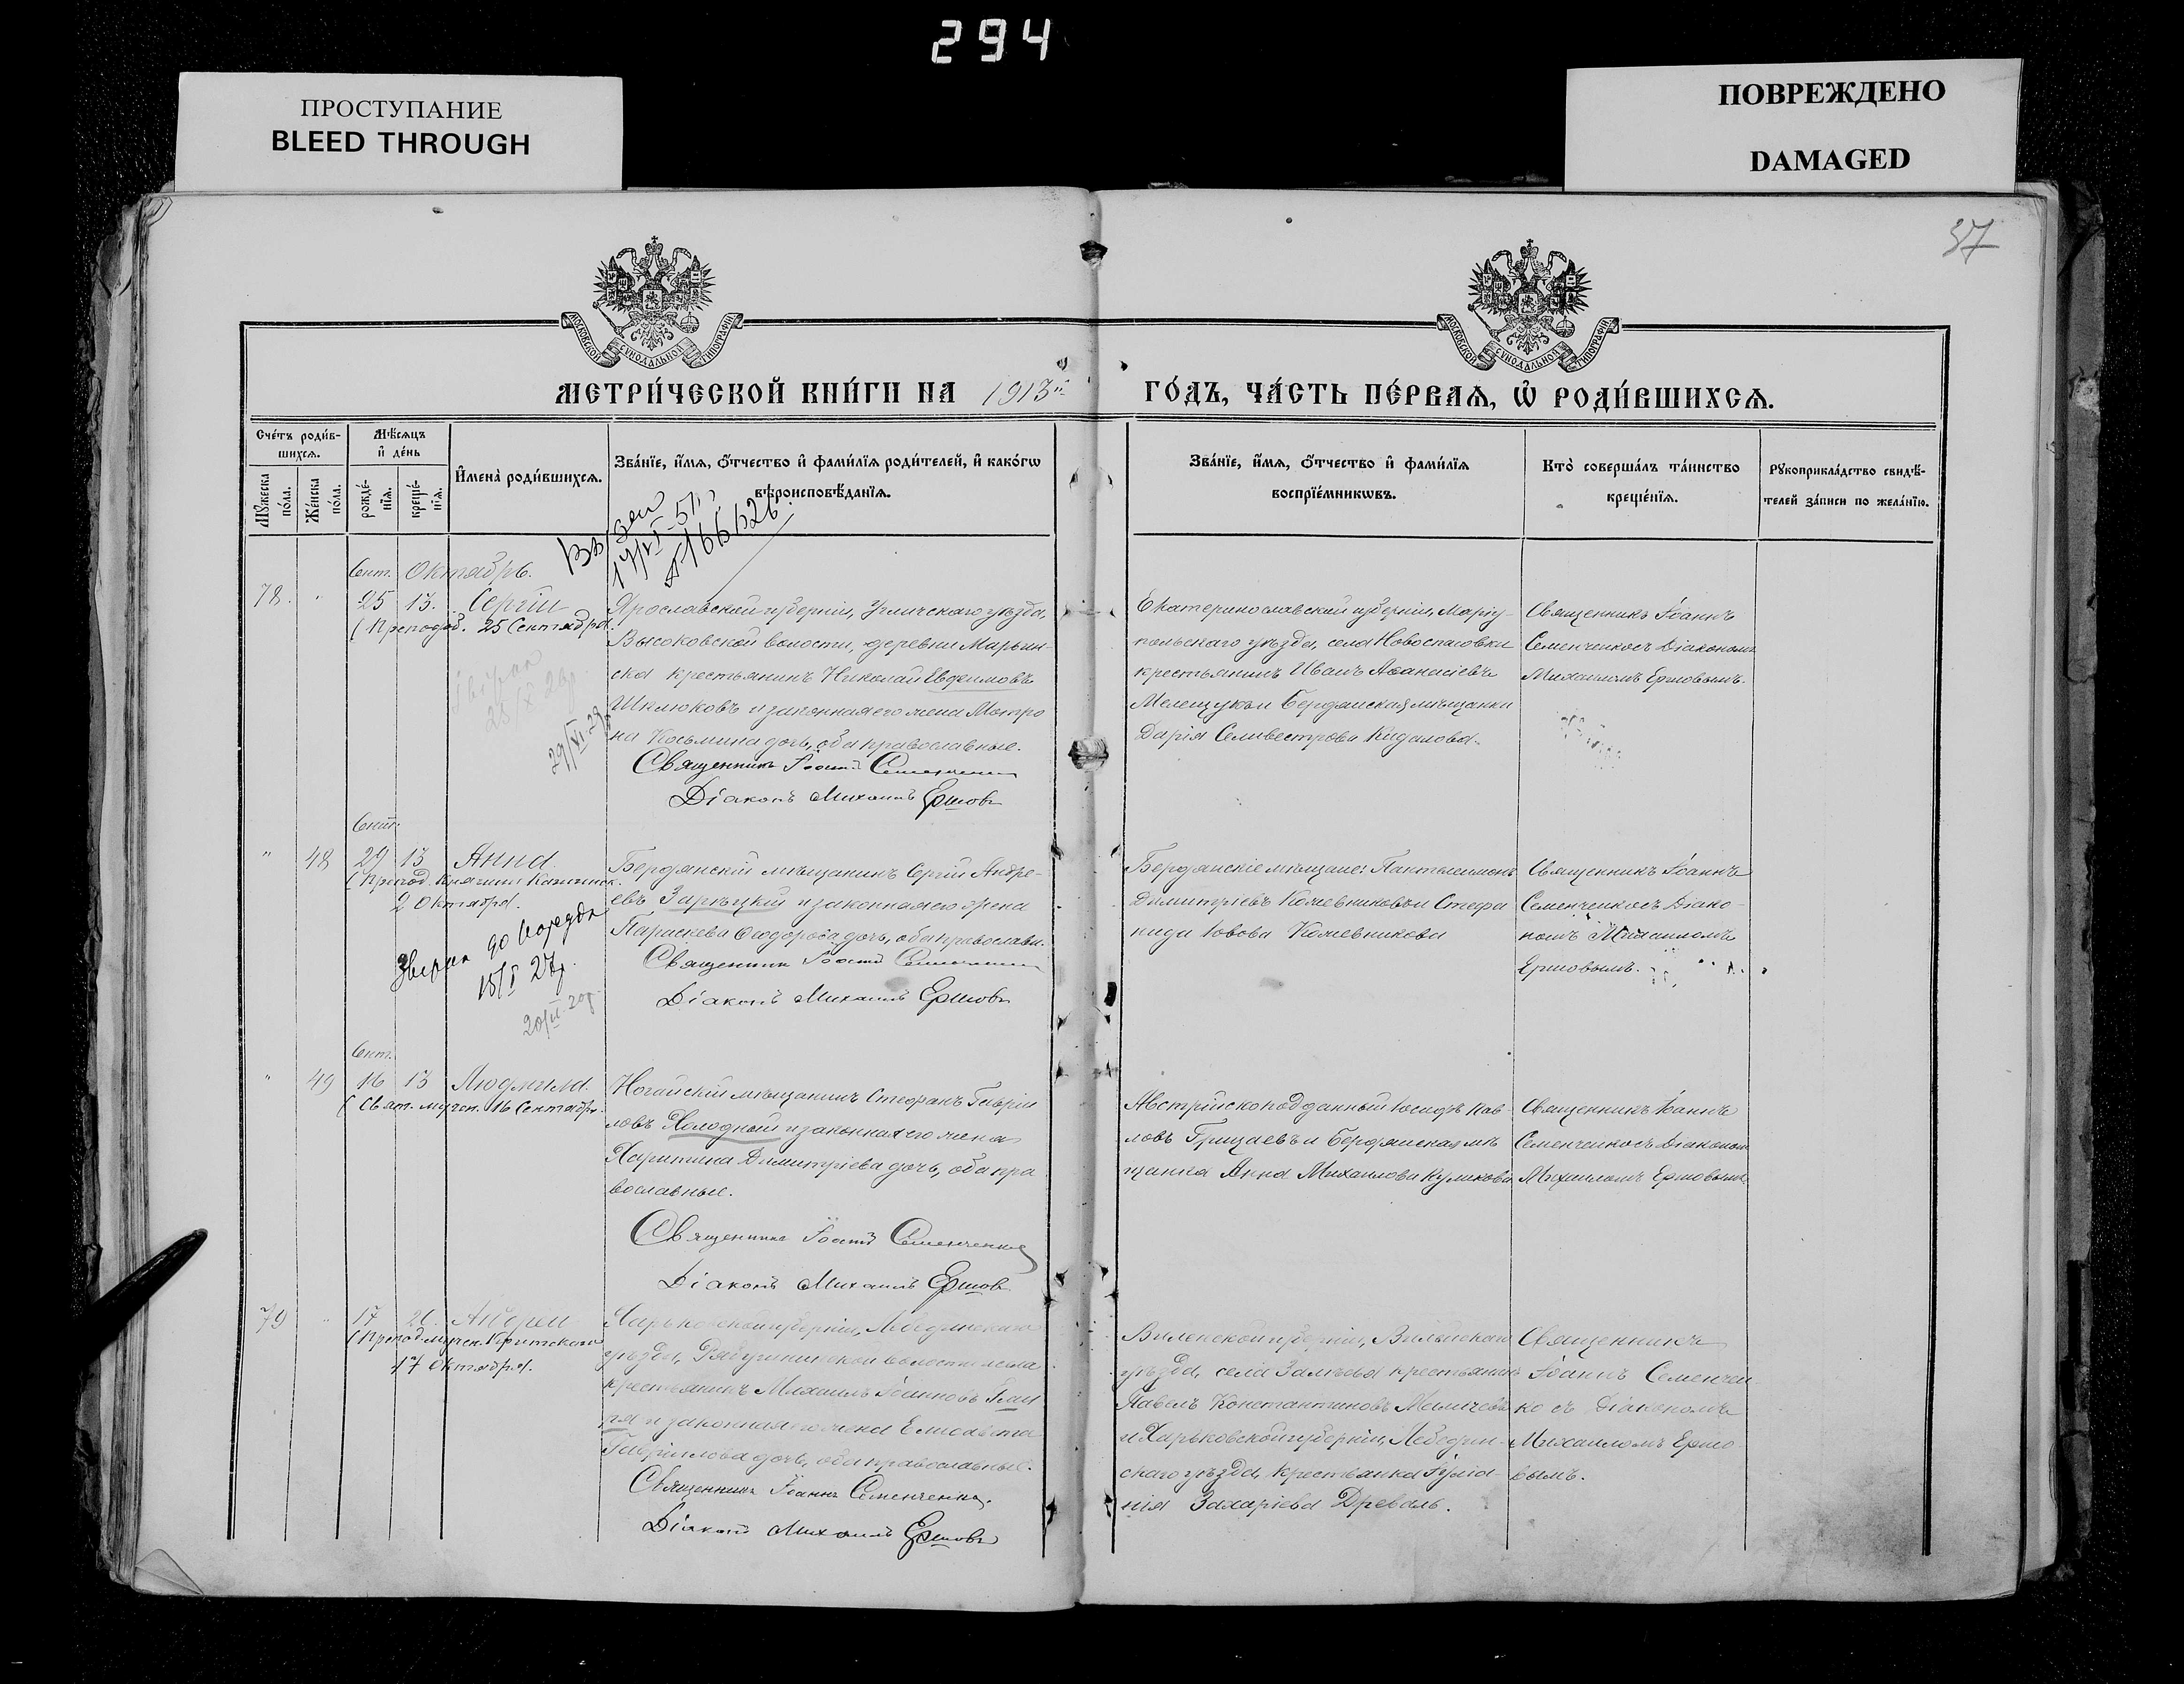 294
ПРОСТУПАНИЕ
BLEED THROUGH
ПОВРЕЖДЕНО
DAMAGED
37
МОСКОВСКОЙ СѴНОДАЛЬНОЙ ТИПОГРАФІИ
МОСКОВСКОЙ СѴНОДАЛЬНОЙ ТИПОГРАФІИ
МЕТРИ́ЧЕСКОЙ КНИ́ГИ НА 1913й
ГО́ДЪ, ЧА́СТЬ ПЕ́РВАЯ, Ѽ РОДИ́ВШИХСЯ.
Сче́тъ роди́в-
шихся.
Мѣ́сяцъ
и҆ де́нь
Мꙋ́жеска по́ла.
Же́нска по́ла.
рожде́-
нїя.
креще́-
нїя.
И҆мена̀ роди́вшихся.
Зва́нїе, и҆́мя, ѻ҆́тчество и҆ фами́лїя роди́телей, и҆ како́гѡ
вѣроисповѣ́данїя.
Зва́нїе, и҆́мя, ѻ҆́тчество и҆ фами́лїя
воспрїе́мникѡвъ.
Кто̀ соверша́лъ та́инство
креще́нїя.
Рꙋкоприкла́дство свидѣ́-
телей за́писи по жела́нїю.
Сент. Октябрь.
78. " 25 13. Сергій
(Преподоб. 25 Сентября.
Ярославской губерніи, Угличскаго уѣзда,
Высоковской волости, деревни Марьин-
ска крестьянинъ Николай Евфимовъ
Шклюковъ и законная его жена Матро
на Косьмина дочь, оба православные.
Священникъ Іоаннъ Семенченко
Діаконъ Михаилъ Ершовъ
29/VI 29
Екатеринославской губерніи, Маріу-
польскаго уѣзда, села Новоспасовки
крестьянинъ Иванъ Аѳанасіевъ
и Бердянская мѣщанка
Дарія Селивестрова
Священникъ Іоаннъ
Семенченко съ Діакономъ
Михаиломъ Ершовымъ.
Сент.
" 48 29 13 Анна
2 Октября.
Бердянскій мѣщанинъ Сергій Андре-
евъ Зарѣцкій и законная его жена
Параскева Ѳеодорова дочь, оба православн.
Священникъ Іоаннъ Семенченко
Діаконъ Михаилъ Ершовъ
15/I 27
Бердянскіе мѣщане: Пантелеимонъ
Димитріевъ Кожевниковъ и Стефа
нида Іовова Кожевникова
Священникъ Іоаннъ
Семенченко съ Діако-
номъ Михаиломъ
Ершовымъ.
Сент.
" 49 16 13 Людмила.
(Свят. мучен. 16 Сентября.
Ногайскій мѣщанинъ Стефанъ Гавріи
ловъ Холодный и законная его жена
Харитина Димитріева дочь, оба пра
вославные.
Священникъ Іоаннъ Семенченко
Діаконъ Михаилъ Ершовъ
Австрійскоподданный Іосифъ Пав-
ловъ Грицаевъ и Бердянская мѣ
щанка Анна Михаилова Куликова
Священникъ Іоаннъ
Семенченко съ Діакономъ
Михаиломъ Ершовымъ.
79 " 17 20. Андрей
(Препод. мучен. Критскаго
17 Октября.
Харьковской губерніи, Лебединскаго
уѣзда, волости села
крестьянинъ Михаилъ Іоанновъ
и законная его жена Елисавета
Гавріилова дочь, оба православные.
Священникъ Іоаннъ Семенченко.
Діаконъ Михаилъ Ершовъ
Виленской губерніи, Вилейскаго
уѣзда, села крестьянинъ
Павелъ Константиновъ
и Харьковской губерніи, Лебедин-
скаго уѣзда, крестьянка Іуліа-
нія Захаріева Древаль.
Священникъ
Іоаннъ Семенчен-
ко съ Діакономъ
Михаиломъ Ершо-
вымъ.